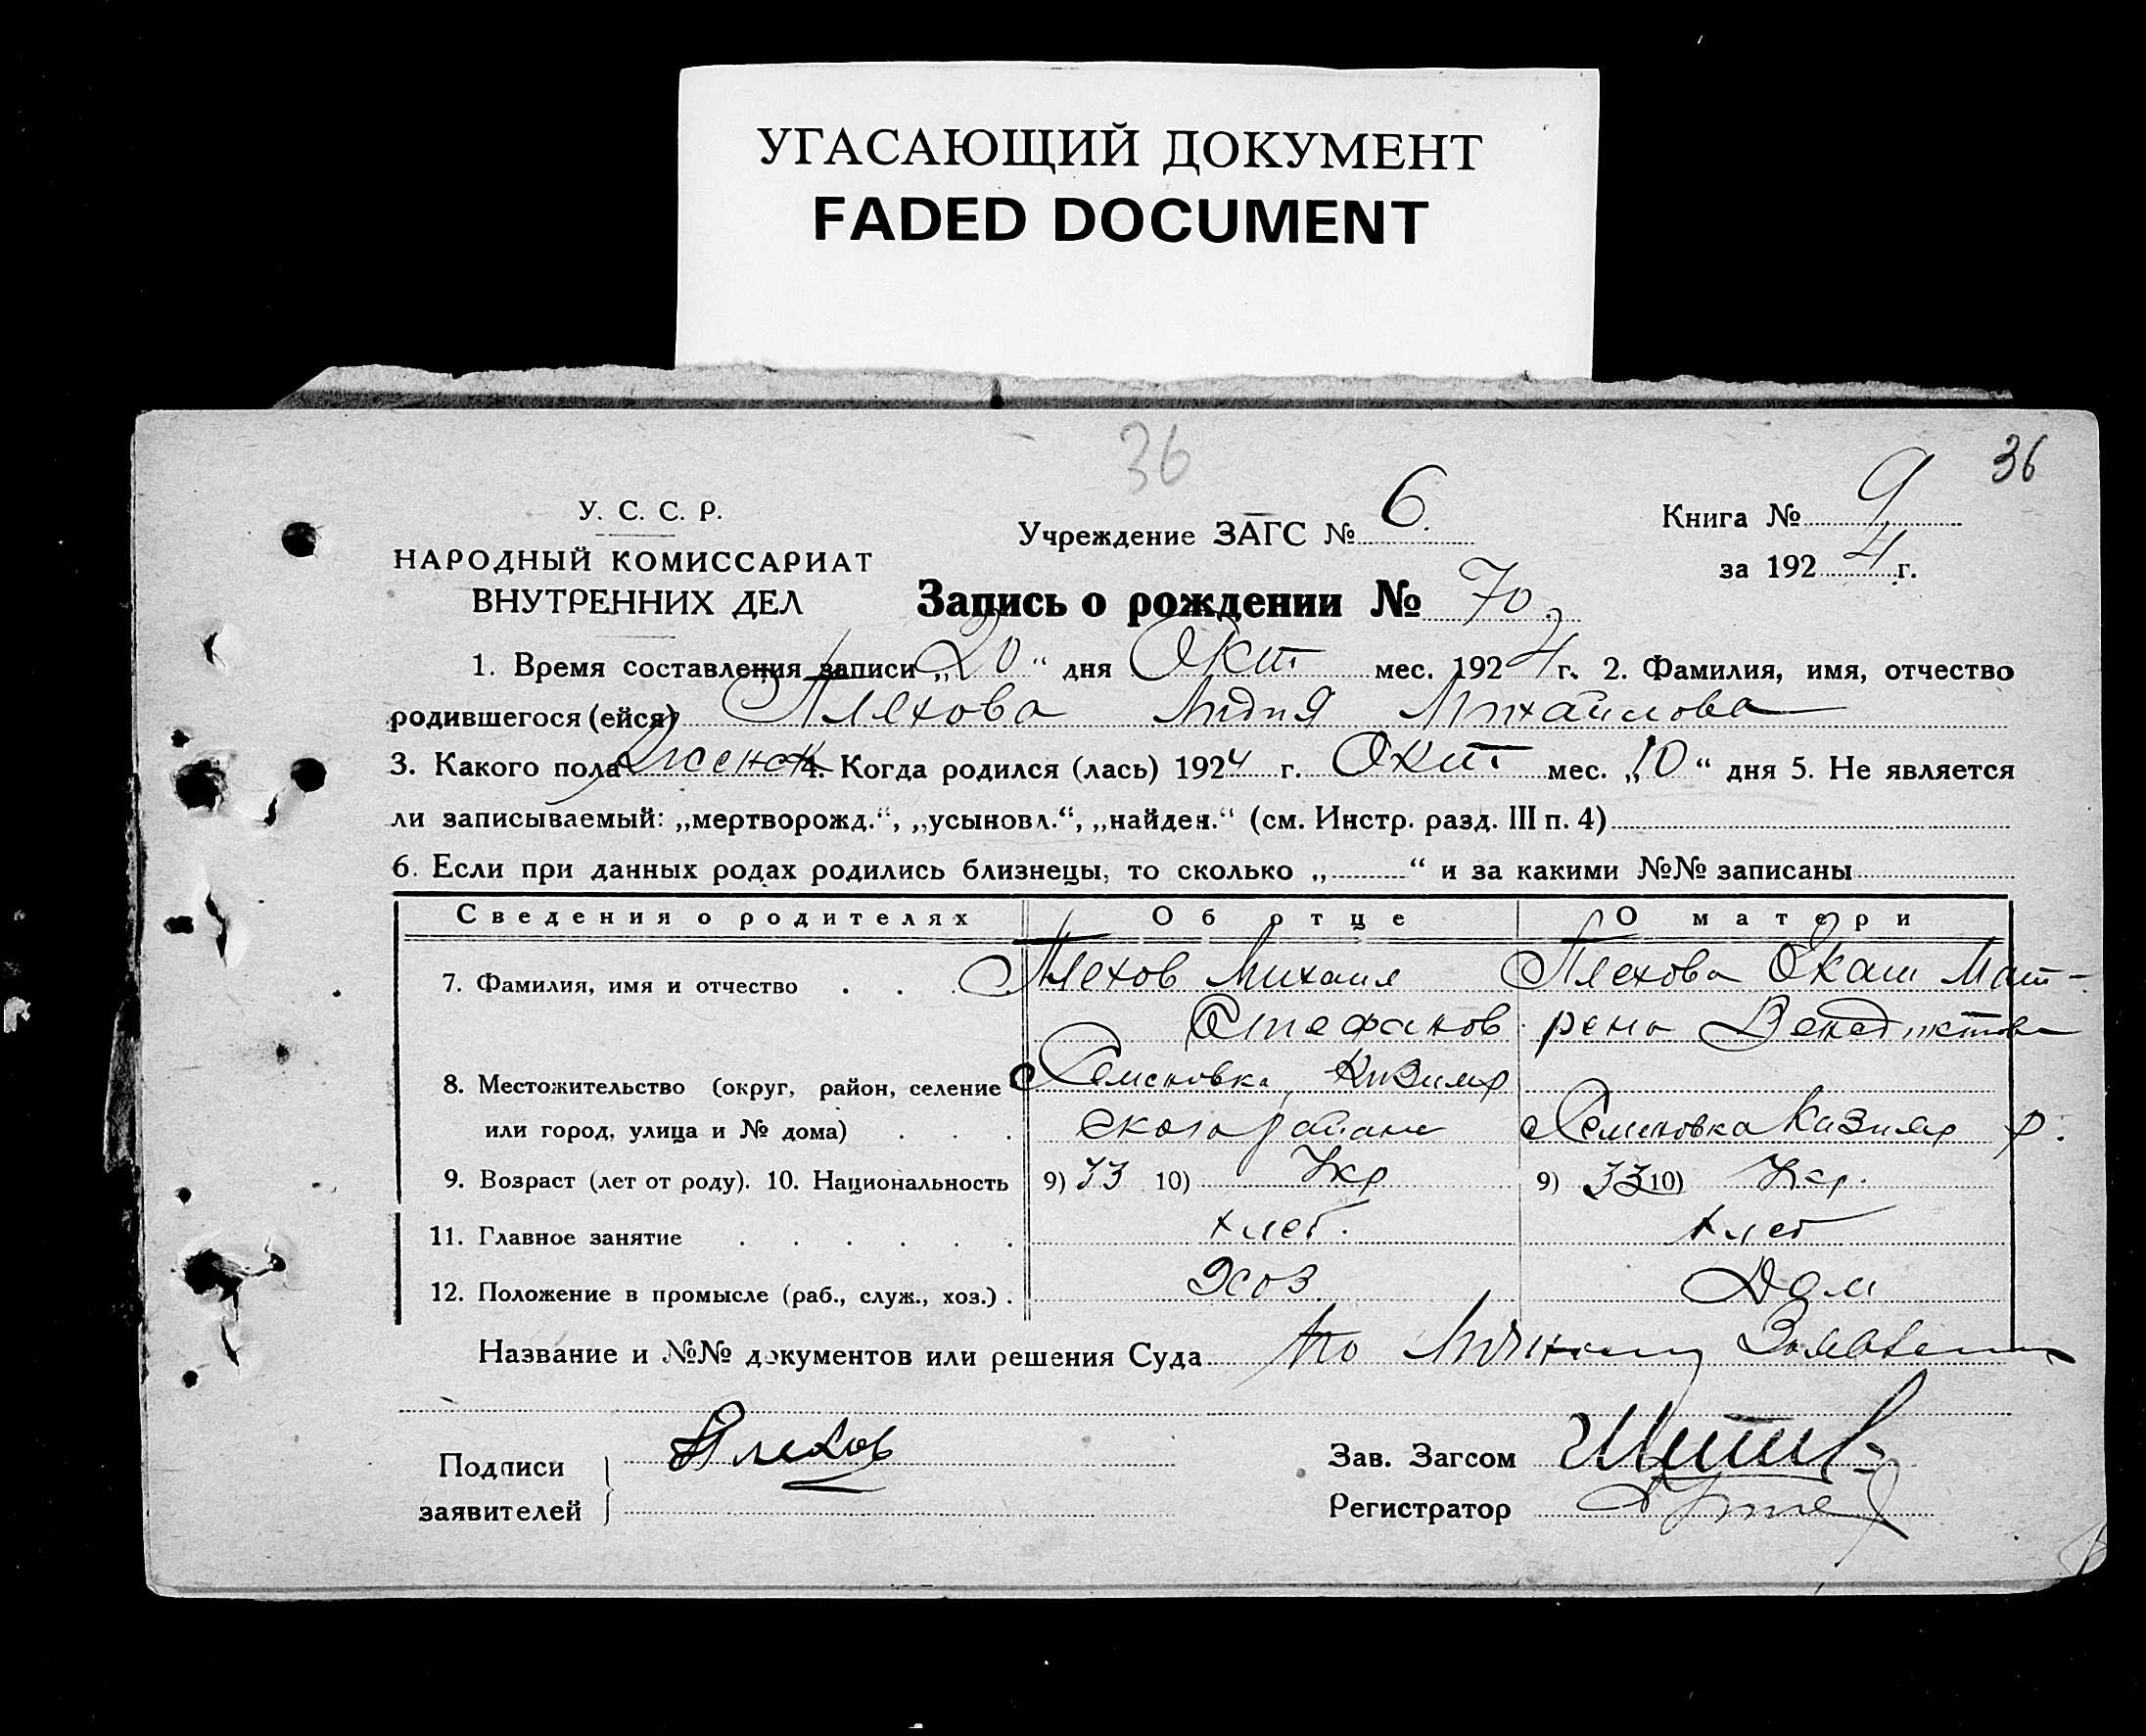 УГАСАЮЩИЙ ДОКУМЕНТ
FADED DOCUMENT
36
36
У. С. С. Р.
НАРОДНЫЙ КОМИССАРИАТ
ВНУТРЕННИХ ДЕЛ
Учреждение ЗАГС № 6.
Книга № 9
за 1924 г.
Запись о рождении № 70
1. Время составления записи „20“ дня Окт мес. 1924 г. 2. Фамилия, имя, отчество
родившегося (ейся) Плехова Лидия Михайлова
3. Какого пола Женск 4. Когда родился (лась) 1924 г. Окт мес. „10“ дня 5. Не является
ли записываемый: „мертворожд.“, „усыновл.“, „найден.“ (см. Инстр. разд. III п. 4)
6. Если при данных родах родились близнецы, то сколько „ “ и за какими №№ записаны
Сведения о родителях Об отце О матери
7. Фамилия, имя и отчество . . . Плехов Михаил Плехова Мат-
Стефанов рена Венедиктова
8. Местожительство (округ, район, селение Семеновка
или город, улица и № дома) . . . ского района Семеновка р.
9. Возраст (лет от роду). 10. Национальность 9) 33 10) Укр 9) 33 10) Укр.
11. Главное занятие . . . . . . хлеб. хлеб
12. Положение в промысле (раб., служ., хоз.) . Хоз. Дом
Название и №№ документов или решения Суда По
Подписи Плехов Зав. Загсом
заявителей Регистратор